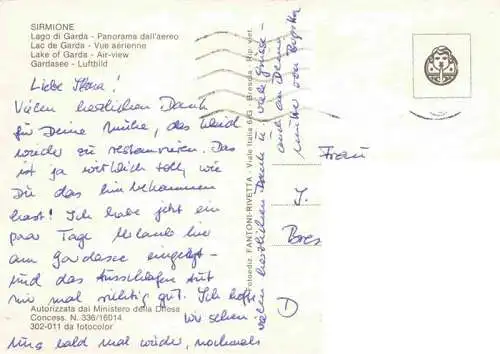 SIRMIONE
Lago di Garda - Panorama dall'aereo
Lac de Garda - Vue aérienne
Lake of Garda - Air-view
Gardasee - Luftbild
Liebe Ilona!
Vielen herzlichen Dank
für Deine Mühe, das Kleid
wieder zu restaurieren. Das
ist ja wirklich toll, wie
Du das hinbekommen
hast! Ich habe jetzt ein
paar Tage Urlaub hier
am Gardasee eingelegt -
und das Ausschlafen tut
mir mal richtig gut. Ich hoffe
wir sehen
uns bald mal wieder, nochmals
vielen herzlichen Dank u. viele Grüsse -
auch an Deine
Mutter von Brigitta
Autorizzata dal Ministero della Difesa
Concess. N. 336/16014
302-011 da fotocolor
Fotoediz. FANTONI-RIVETTA - Viale Italia 6/G - Brescia - Rip. viet.
Frau
I.
Bres
D